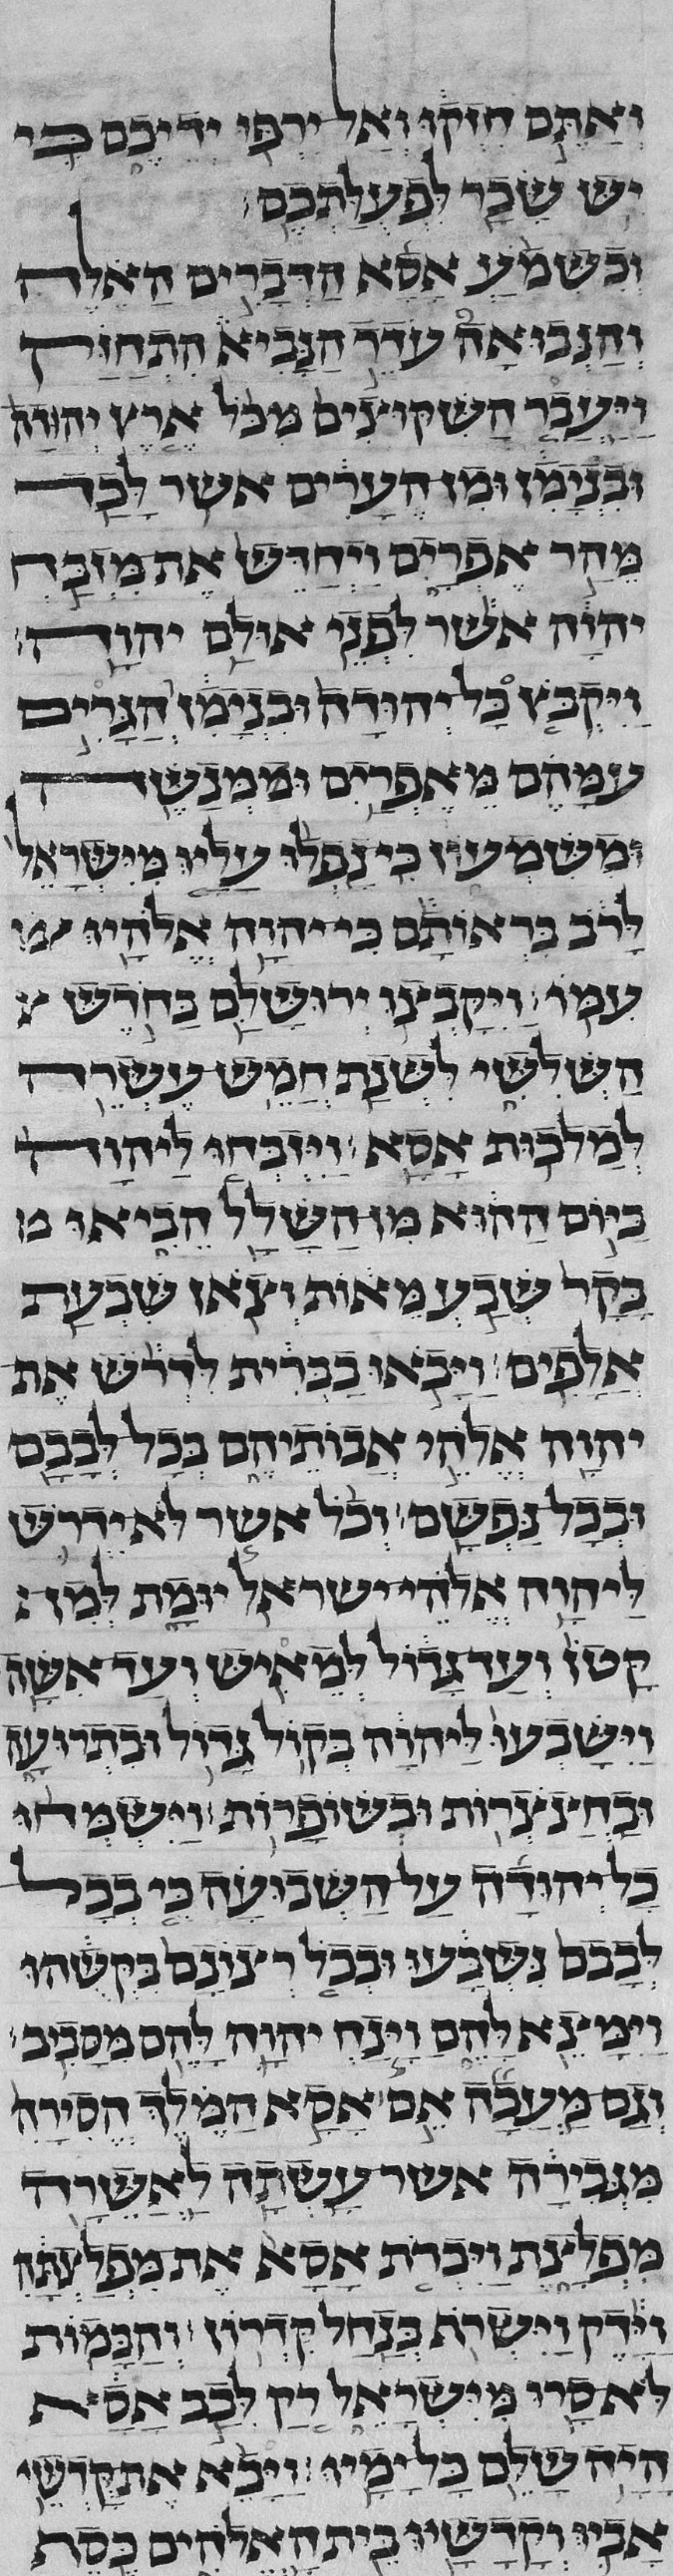 וְאַתֶּם חִזְקוּ וְאַל יִרְפּוּ יְדֵיכֶם כִּי
יֵשׁ שָׂכָר לִפְעֻלַּתְכֶם׃
וְכִשְׁמֹעַ אָסָא הַדְּבָרִים הָאֵלֶּה
וְהַנְּבוּאָה עֹדֵד הַנָּבִיא הִתְחַזַּק
וַיַּעֲבֵר הַשִּׁקּוּצִים מִכָּל אֶרֶץ יְהוּדָה
וּבִנְיָמִן וּמִן הֶעָרִים אֲשֶׁר לָכַד
מֵהַר אֶפְרָיִם וַיְחַדֵּשׁ אֶת מִזְבַּח
יְהוָה אֲשֶׁר לִפְנֵי אוּלָם יְהוָה׃
וַיִּקְבֹּץ כָּל יְהוּדָה וּבִנְיָמִן הַגָּרִים
עִמָּהֶם מֵאֶפְרַיִם וּמְמְנַשֶּׁה
וּמִשִּׁמְעוֹן כִּי נָפְלוּ עָלָיו מִיִּשְׂרָאֵל
לָרֹב בִּרְאוֹתָם כִּי יְהוָה אֱלֹהָיו
עִמּוֹ׃ וַיִּקָּבְצוּ יְרוּשָׁלַם בַּחֹדֶשׁ
הַשְּׁלִשִׁי לִשְׁנַת חֲמֵשׁ עֶשְׂרֵה
לְמַלְכוּת אָסָא׃ וַיִּזְבְּחוּ לַיהוָה
בַּיּוֹם הַהוּא מִן הַשָּׁלָל הֵבִיאוּ
בָּקָר שְׁבַע מֵאוֹת וְצֹאן שִׁבְעַת
אֲלָפִים׃ וַיָּבֹאוּ בַבְּרִית לִדְרֹשׁ אֶת
יְהוָה אֱלֹהֵי אֲבוֹתֵיהֶם בְּכָל לְבָבָם
וּבְכָל נַפְשָׁם׃ וְכֹל אֲשֶׁר לֹא יִדְרֹשׁ
לַיהוָה אֱלֹהֵי יִשְׂרָאֵל יוּמָת לְמִן
קָטֹן וְעַד גָּדוֹל לְמֵאִישׁ וְעַד אִשָּׁה
וַיִּשָּׁבְעוּ לַיהוָה בְּקוֹל גָּדוֹל וּבִתְרוּעָה
וּבַחֲצֹצְרוֹת וּבְשׁוֹפָרוֹת׃ וַיִּשְׂמְחוּ
כָל יְהוּדָה עַל הַשְּׁבוּעָה כִּי בְכָל
לְבָבָם נִשְׁבָּעוּ וּבְכָל רְצוֹנָם בִּקְשֻׁהוּ
וַיִּמָּצֵא לָהֶם וַיָּנַח יְהוָה לָהֶם מִסָּבִיב׃
וְגַם מַעֲכָה אֵם אָסָא הַמֶּלֶךְ הֱסִירָהּ
מִגְּבִירָה אֲשֶׁר עָשְׂתָה לַאֲשֵׁרָה
מִפְלָצֶת וַיִּכְרֹת אָסָא אֶת מִפְלַצְתָּהּ
וַיָּדֶק וַיִּשְׂרֹף בְּנַחַל קִדְרוֹן׃ וְהַבָּמוֹת
לֹא סָרוּ מִיִּשְׂרָאֵל רַק לְבַב אָסָא
הָיָה שָׁלֵם כָּל יָמָיו׃ וַיָּבֵא אֶת קָדְשֵׁי
אָבִיו וְקָדָשָׁיו בֵּית הָאֱלֹהִים כֶּסֶף